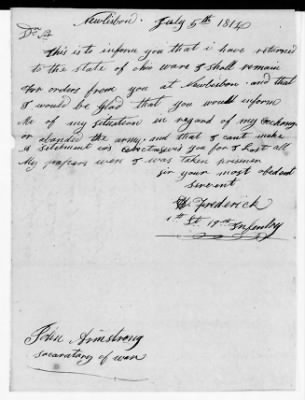 Newlisbon. July 5th 1814
Dr Sr
This is to inform you that i have returned
to the state of ohio ware I shall remain
for orders from you at Newlisbon. and that
I would be glad that you would inform
Me of my situation in regard of my Exchange
or abandon the army. and that I cant make
a Satement as you for I Lost all
My papears wen I was taken prisnor
Sir your most obedent
Sirvent
Frederick
1st Lt 19th Infentry
John Armstrong
Sacaratary of war